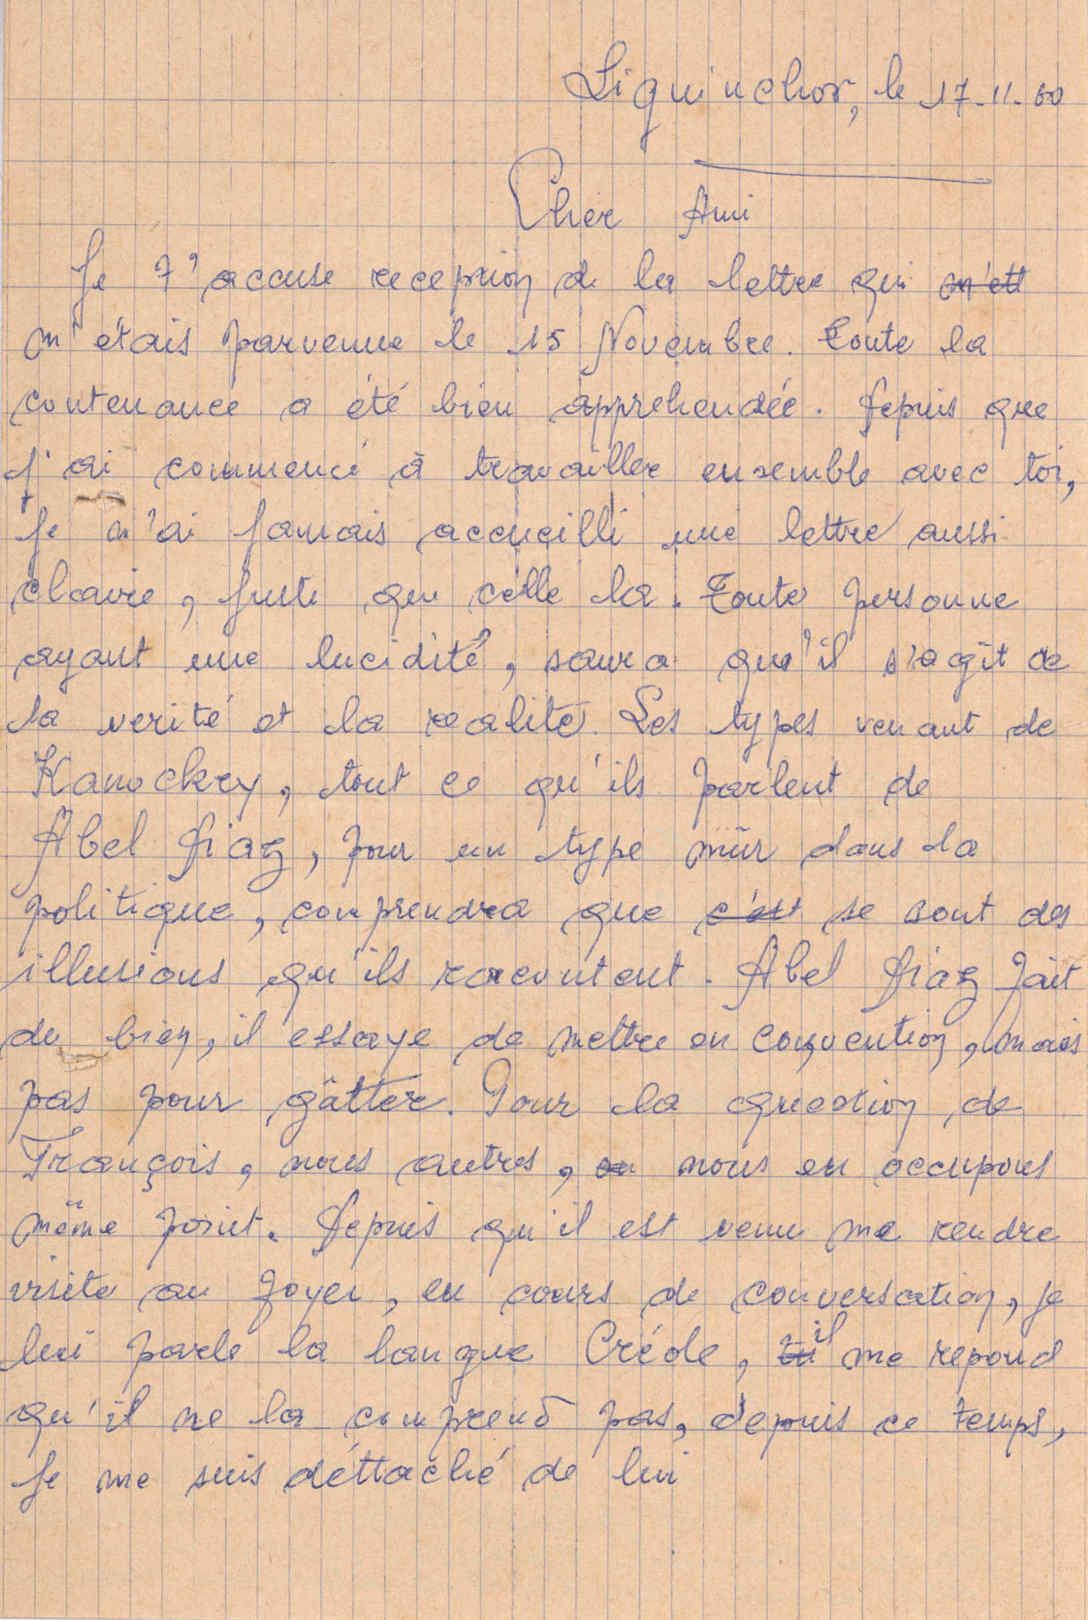 Siguinchor, le 17-11-60
Cher Ami
Je t'accuse reception de la lettre qui m'ett
m'étais parvenue le 15 Novembre. Toute la
contenance a été bien apprehendée. Depuis que
j'ai commencé à travailler ensemble avec toi,
je n'ai jamais accueilli une lettre aussi
claire, juste que celle la. Toute personne
ayant une lucidité, saura qu'il s'agit de
la verité et la realité. Les types venant de
Kanockry, tout ce qu'ils parlent de
Abel Diaz, pour un type mûr dans la
politique, comprendra que c'est se sont des
illusions qu'ils racontent. Abel Diaz fait
du bien, il essaye de mettre en convention, mais
pas pour gâtter. Pour la question de
François, nous autres, en nous en occupons
même point. Depuis qu'il est venu me rendre
visite au foyer, en cours de conversation, je
lui parle la langue Créole, il me repond
qu'il ne la comprend pas, depuis ce temps,
je me suis déttaché de lui